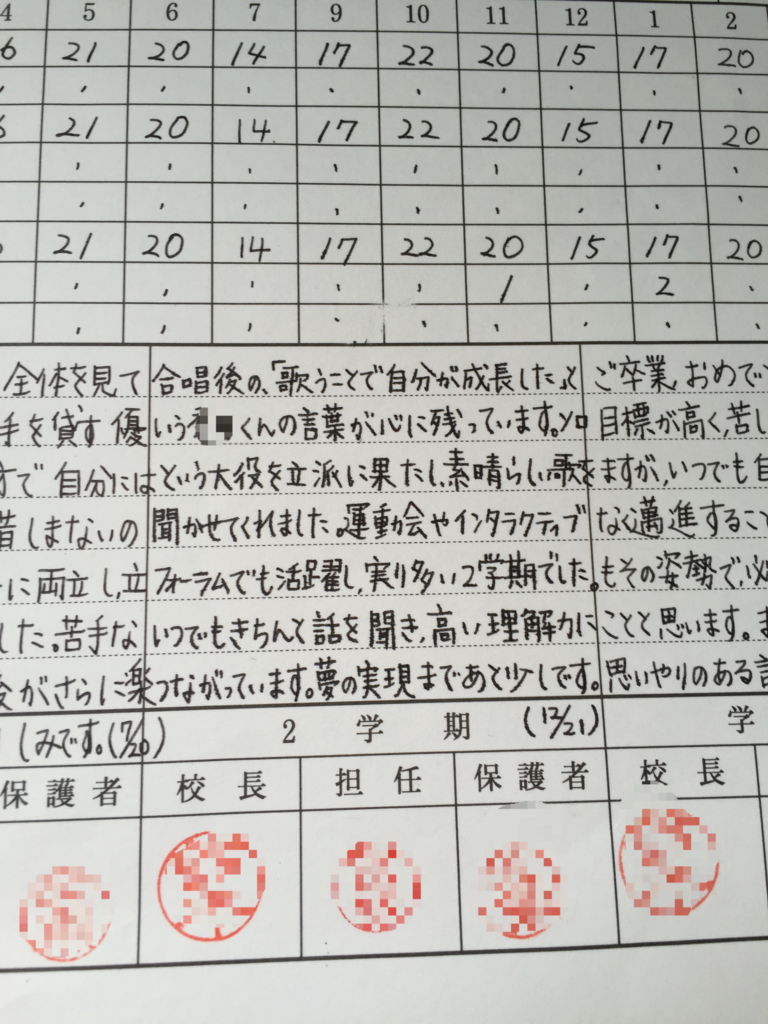 4 5 6 7 9 10 11 12 1 2
6 21 20 14 17 22 20 15 17 20
21 20 14 17 22 20 15 17 20
21 20 14 17 22 20 15 17 20
1 2
全体を見て 合唱後の、「歌うことで自分が成長した」と ご卒業、おめでと
手を貸す優 いう くんの言葉が心に残っています。ソロ 目標が高く、苦し
で自分には という大役を立派に果たし、素晴らしい歌を ますが、いつでも自
惜しまないの 聞かせてくれました。運動会やインタラクティブ なく邁進すること
に両立し、立 フォーラムでも活躍し、実り多い2学期でした。 もその姿勢で、必
した。苦手な いつでもきちんと話を聞き、高い理解力に ことと思います。ま
後がさらに楽 つながっています。夢の実現まであと少しです。 思いやりのある
しみです。(7/20) 2 学 期 (12/21) 学
保護者 校長 担任 保護者 校長